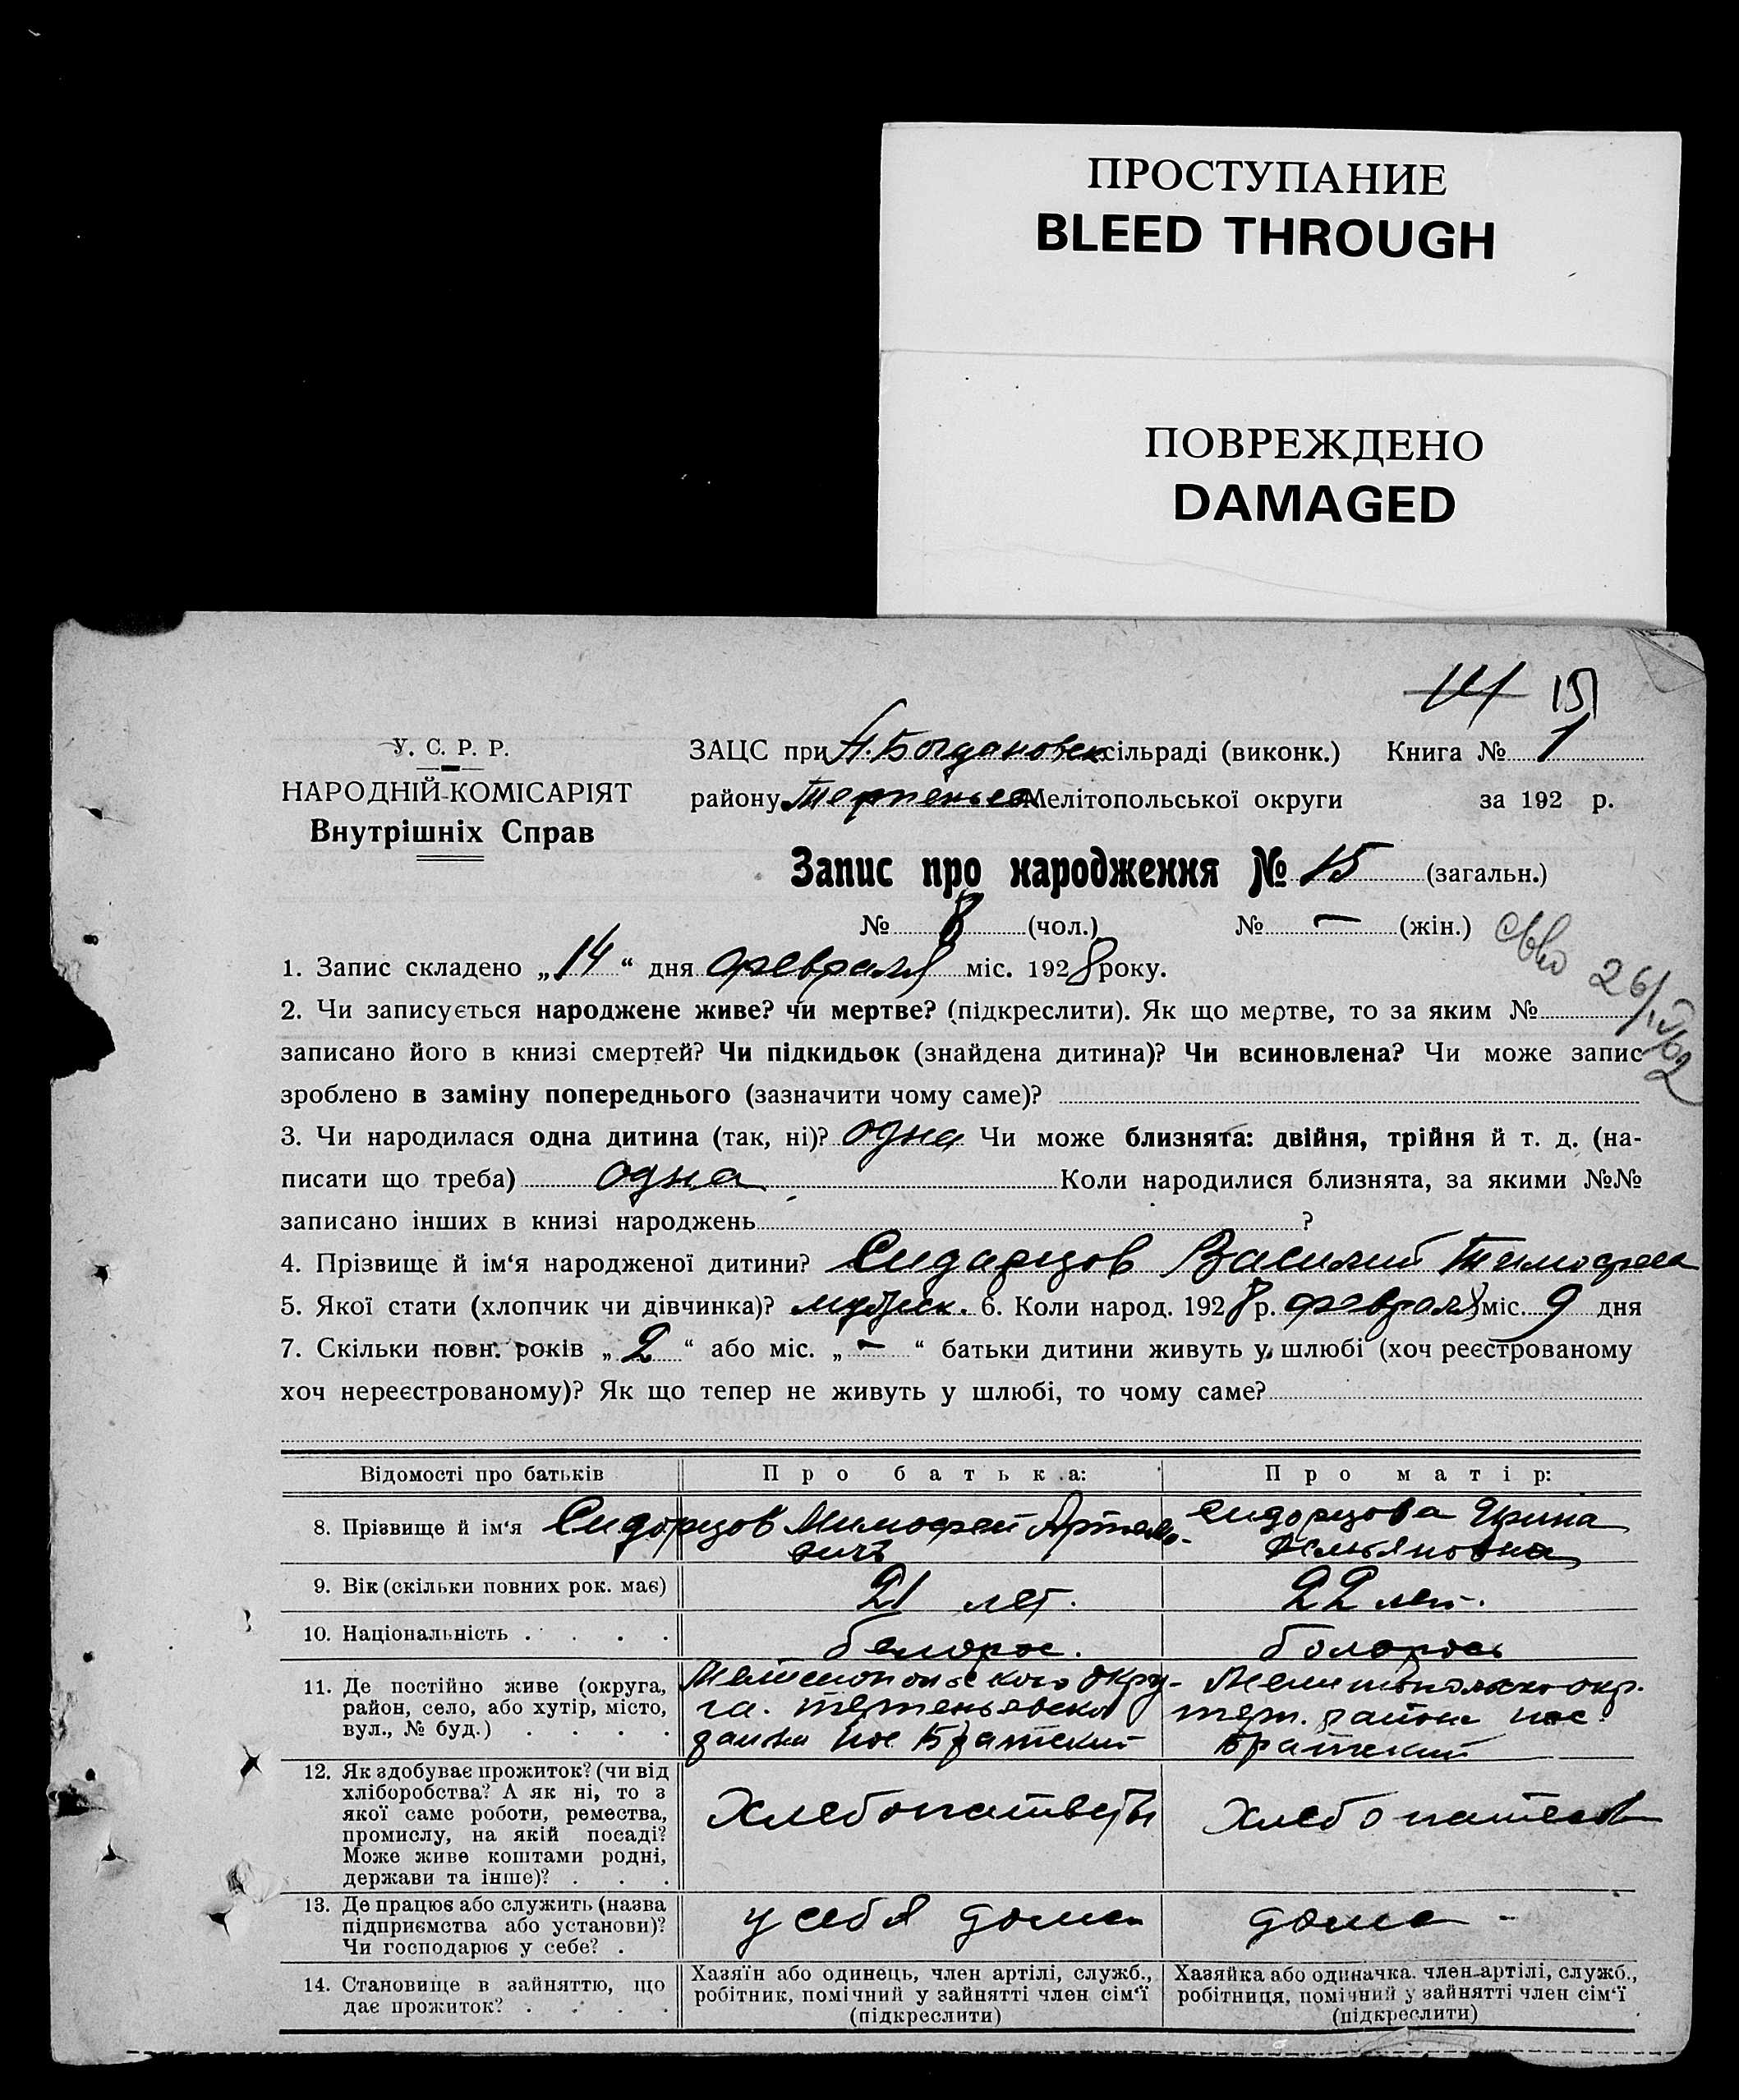 ПРОСТУПАНИЕ
BLEED THROUGH
ПОВРЕЖДЕНО
DAMAGED
14 15
У. С. Р. Р.
НАРОДНІЙ КОМІСАРІЯТ
Внутрішніх Справ
ЗАЦС при Н. Богдановск сільраді (виконк.) Книга № 1
району Терпеньев Мелітопольської округи за 192 р.
Запис про народження № 15 (загальн.)
№ 8 (чол.) № — (жін.)
26/IV 62
1. Запис складено „14“ дня февраля міс. 1928 року.
2. Чи записується народжене живе? чи мертве? (підкреслити). Як що мертве, то за яким №
записано його в книзі смертей? Чи підкидьок (знайдена дитина)? Чи всиновлена? Чи може запис
зроблено в заміну попереднього (зазначити чому саме)?
3. Чи народилася одна дитина (так, ні)? одна Чи може близнята: двійня, трійня й т. д. (на-
писати що треба) одна Коли народилися близнята, за якими №№
записано інших в книзі народжень ?
4. Прізвище й ім‘я народженої дитини? Сидарцов Василий Тимофеев
5. Якої стати (хлопчик чи дівчинка)? мужск. 6. Коли народ. 1928 р. февраля міс. 9 дня
7. Скільки повн. років „2“ або міс. „–“ батьки дитини живуть у шлюбі (хоч реєстрованому
хоч нереєстрованому)? Як що тепер не живуть у шлюбі, то чому саме?
Відомості про батьків Про батька: Про матір:
8. Прізвище й ім‘я Сидорцов Тимофей Артемо-
вич
Сидорцова Ирина
Емельяновна
9. Вік (скільки повних рок. має) 21 лет. 22 лет.
10. Національність белорос. болорось
11. Де постійно живе (округа,
район, село, або хутір, місто,
вул., № буд.)
Мелитопольского окру-
га. терпеньевского
района пос Братский
Мелитопольско окр.
терп. района пос
Братский
12. Як здобуває прожиток? (чи від
хліборобства? А як ні, то з
якої саме роботи, ремества,
промислу, на якій посаді?
Може живе коштами родні,
держави та інше)?
Хлебопашество Хлебопашество
13. Де працює або служить (назва
підприємства або установи)?
Чи господарює у себе?
у себя дома дома –
14. Становище в зайняттю, що
дає прожиток?
Хазяїн або одинець, член артілі, служб.,
робітник, помічний у зайнятті член сім‘ї
(підкреслити)
Хазяйка або одиначка. член артілі, служб.,
робітниця, помічний у зайнятті член сім‘ї
(підкреслити)